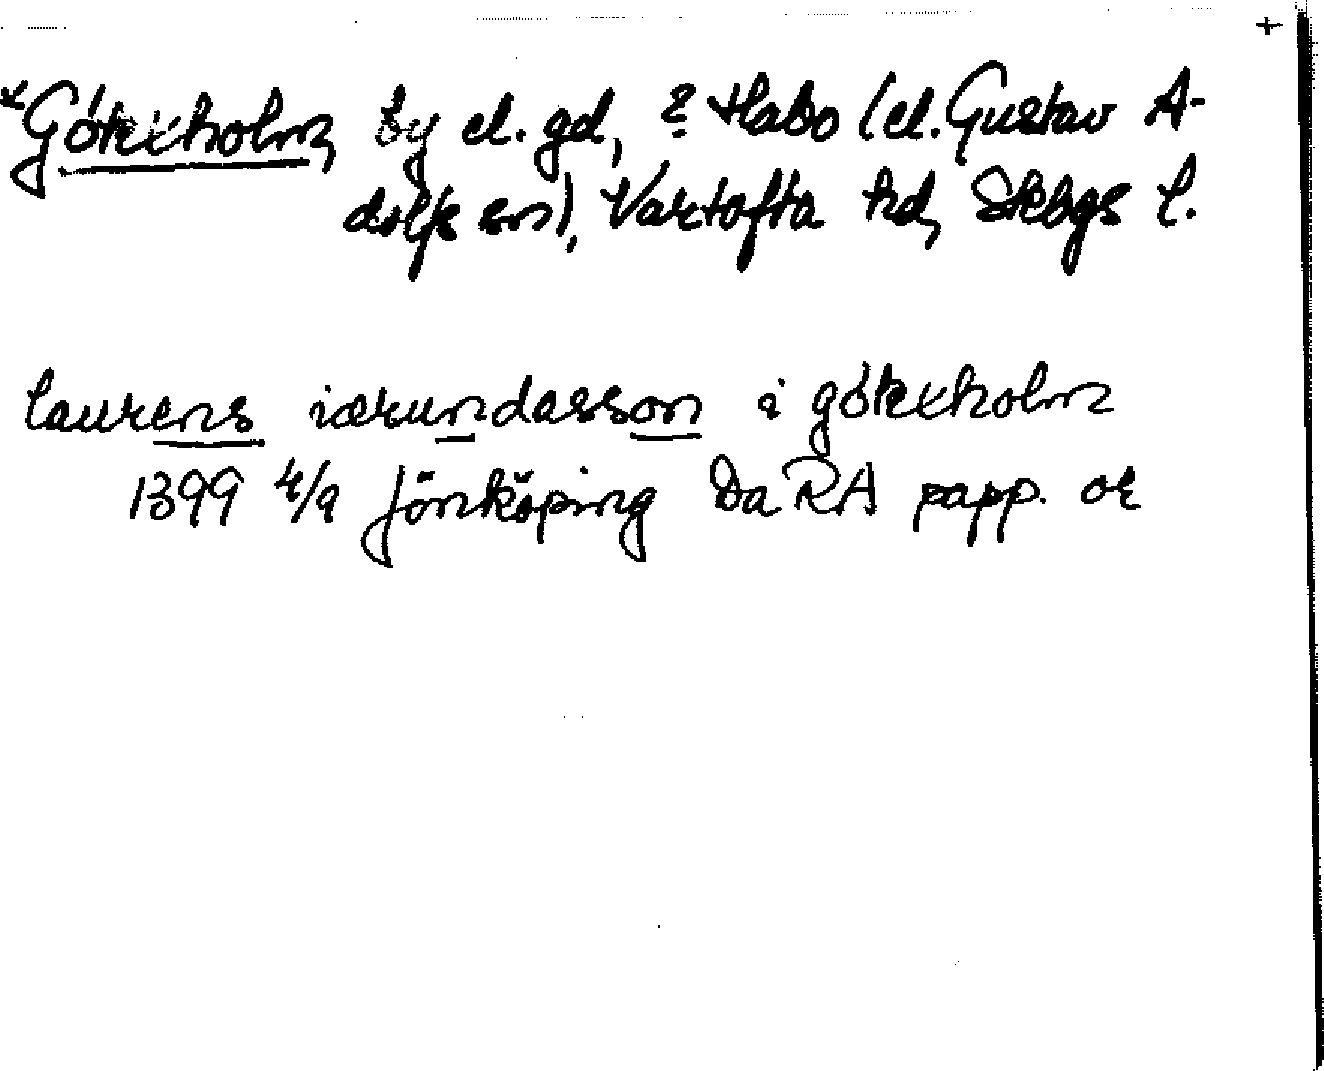 *Götexholm, by el. gd, ? Habo (el. Gustav A-
dolfs sn), Vartofta hd, Skbgs l.
laurens iærundasson i götexholm
1399 4/9 Jönköping Da RA papp. or